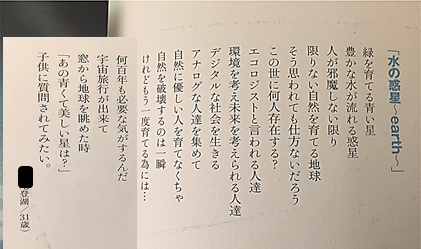 「水の惑星〜earth〜」
緑を育てる青い星
豊かな水が流れる惑星
人が邪魔しない限り
限りない自然を育てる地球
そう思われても仕方ないだろう
この世に何人存在する?
エコロジストと言われる人達
環境を考え未来を考えられる人達
デジタルな社会を生きる
アナログな人達を集めて
自然に優しい人を育てなくちゃ
自然を破壊するのは一瞬
けれどもう一度育てる為には…
何百年も必要な気がするんだ
宇宙旅行が出来て
窓から地球を眺めた時
「あの青くて美しい星は?」
子供に質問されてみたい。
登湖／31歳)